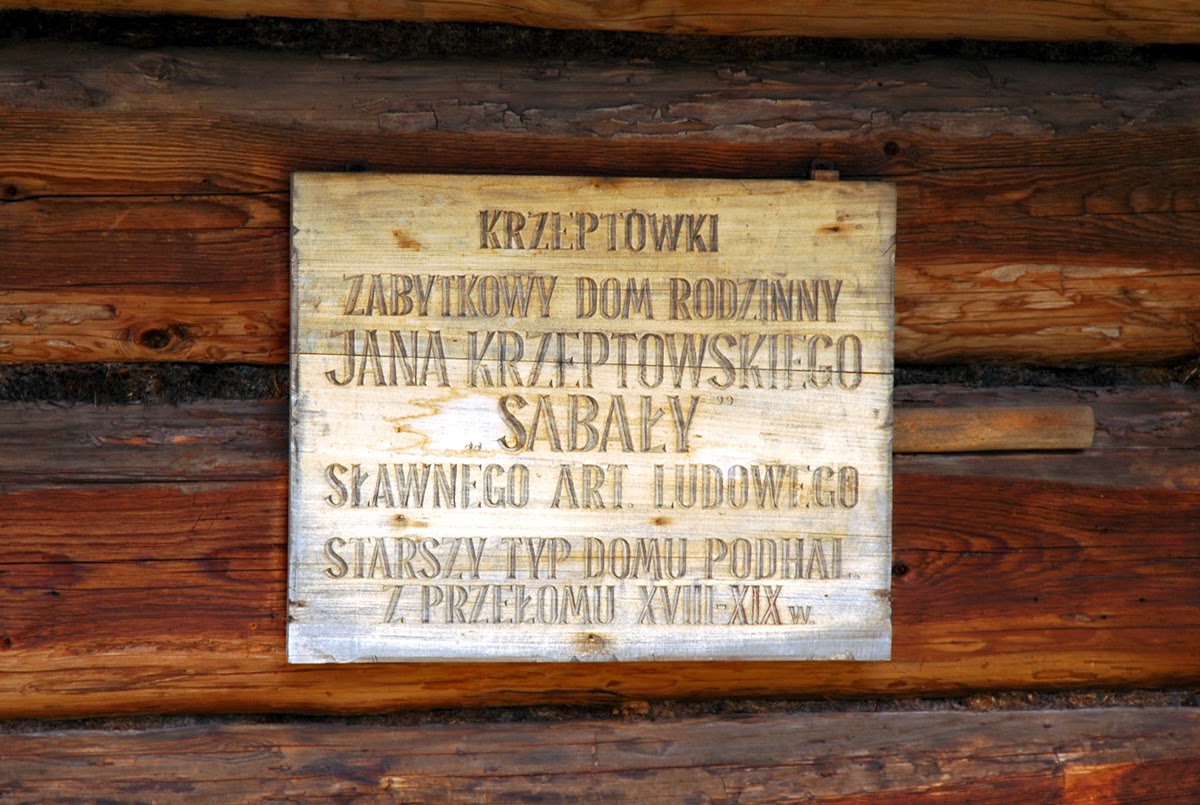 KRZEPTÓWKI
ZABYTKOWY DOM RODZINNY
JANA KRZEPTOWSKIEGO
„SABAŁY”
SŁAWNEGO ART. LUDOWEGO
STARSZY TYP DOMU PODHAL.
Z PRZEŁOMU XVIII-XIX w.